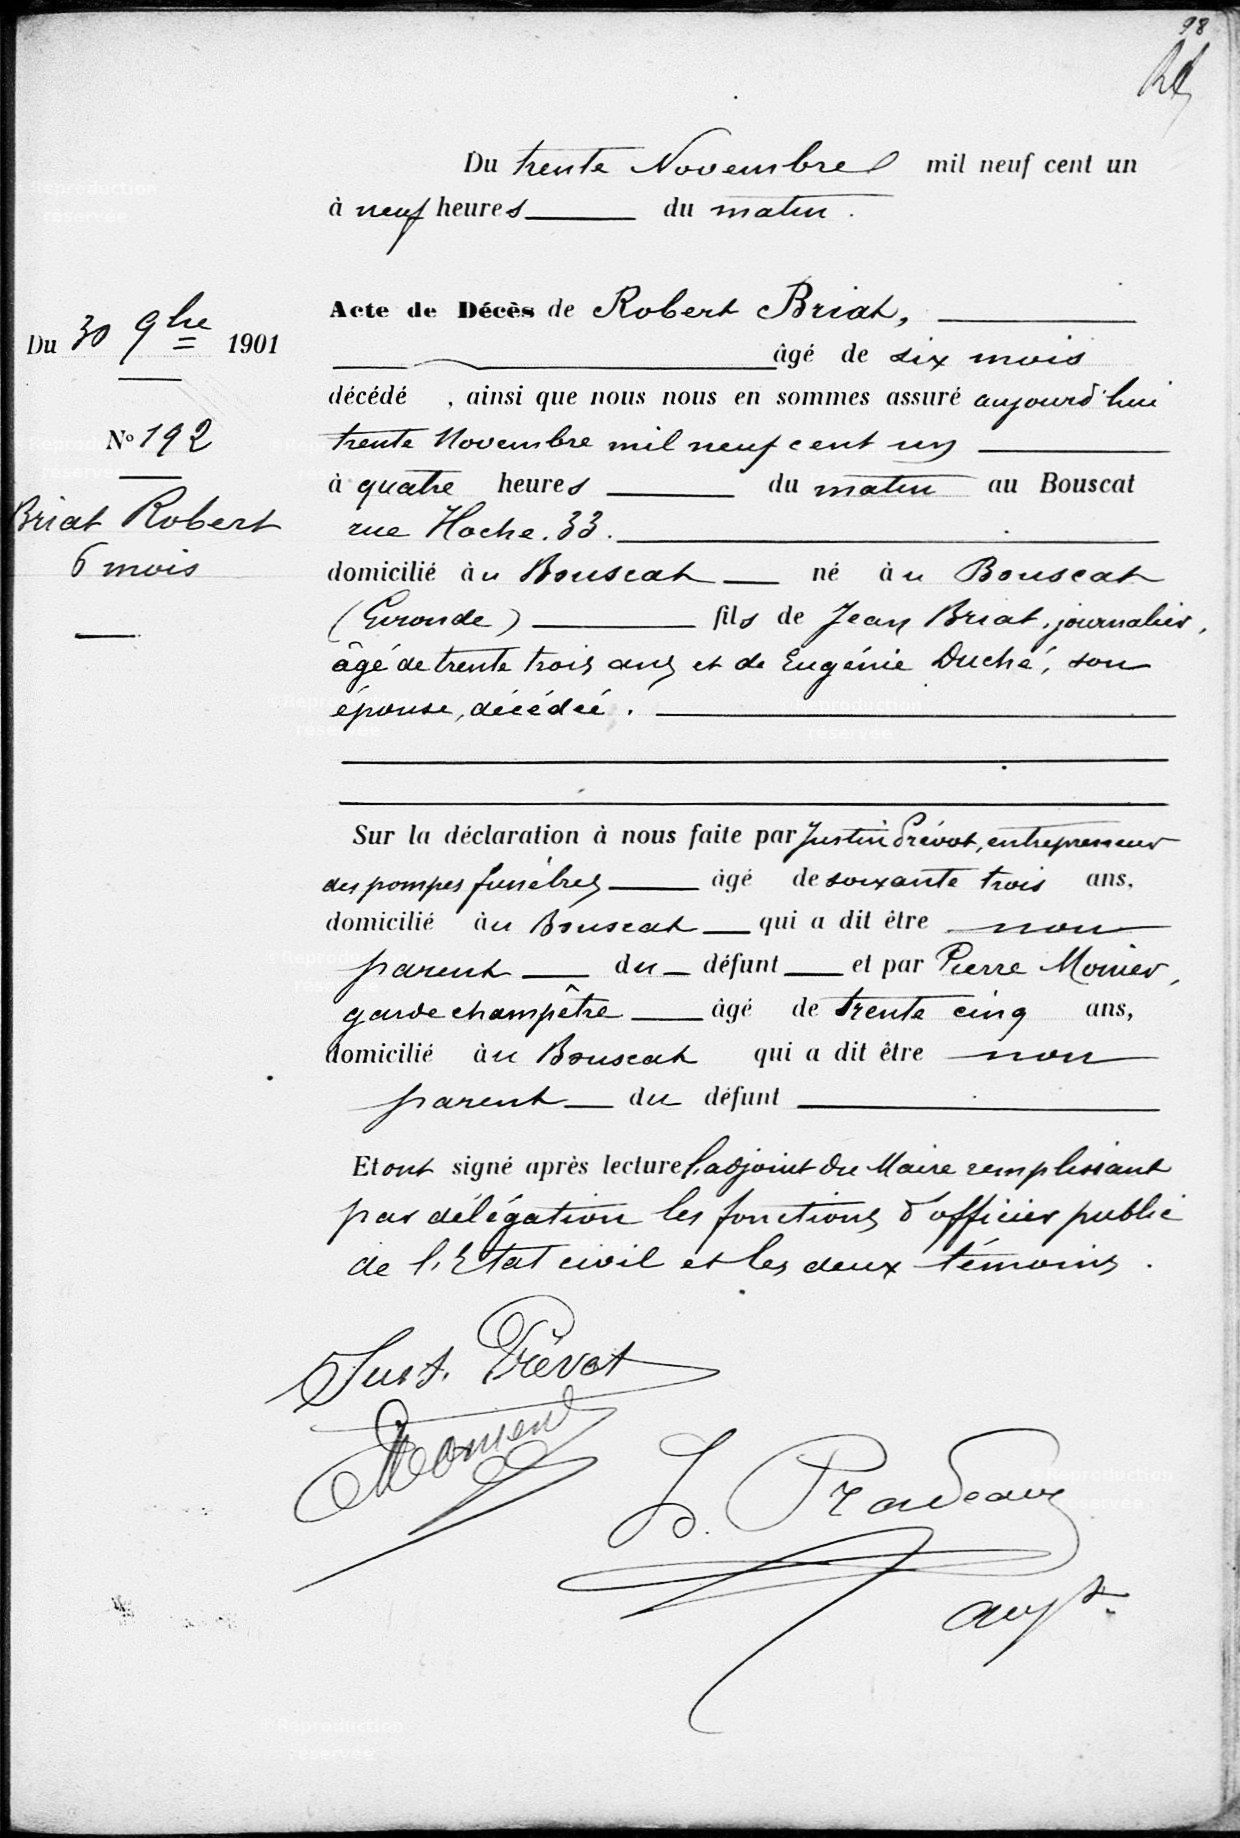 98
Du trente Novembre mil neuf cent un
à neuf heures du matin.
Acte de Décès de Robert Briat,
Du 30 9bre 1901
âgé de six mois
décédé , ainsi que nous nous en sommes assuré aujourd'hui
N° 192
trente Novembre mil neuf cent un
à quatre heures du matin au Bouscat
Briat Robert
rue Hoche. 33.
6 mois
domicilié au Bouscat né au Bouscat
(Gironde) fils de Jean Briat, journalier,
âgé de trente trois ans et de Eugénie Duché, son
épouse, décédée.
Sur la déclaration à nous faite par Justin Prévot, entrepreneur
des pompes funèbres âgé de soixante trois ans,
domicilié au Bouscat qui a dit être non
parent du défunt et par Pierre Monier,
garde champêtre âgé de trente cinq ans,
domicilié au Bouscat qui a dit être non
parent du défunt
Et ont signé après lecture l'adjoint du Maire remplissant
par délégation les fonctions d'officier public
de l'Etat civil et les deux témoins.
Just. Prévot